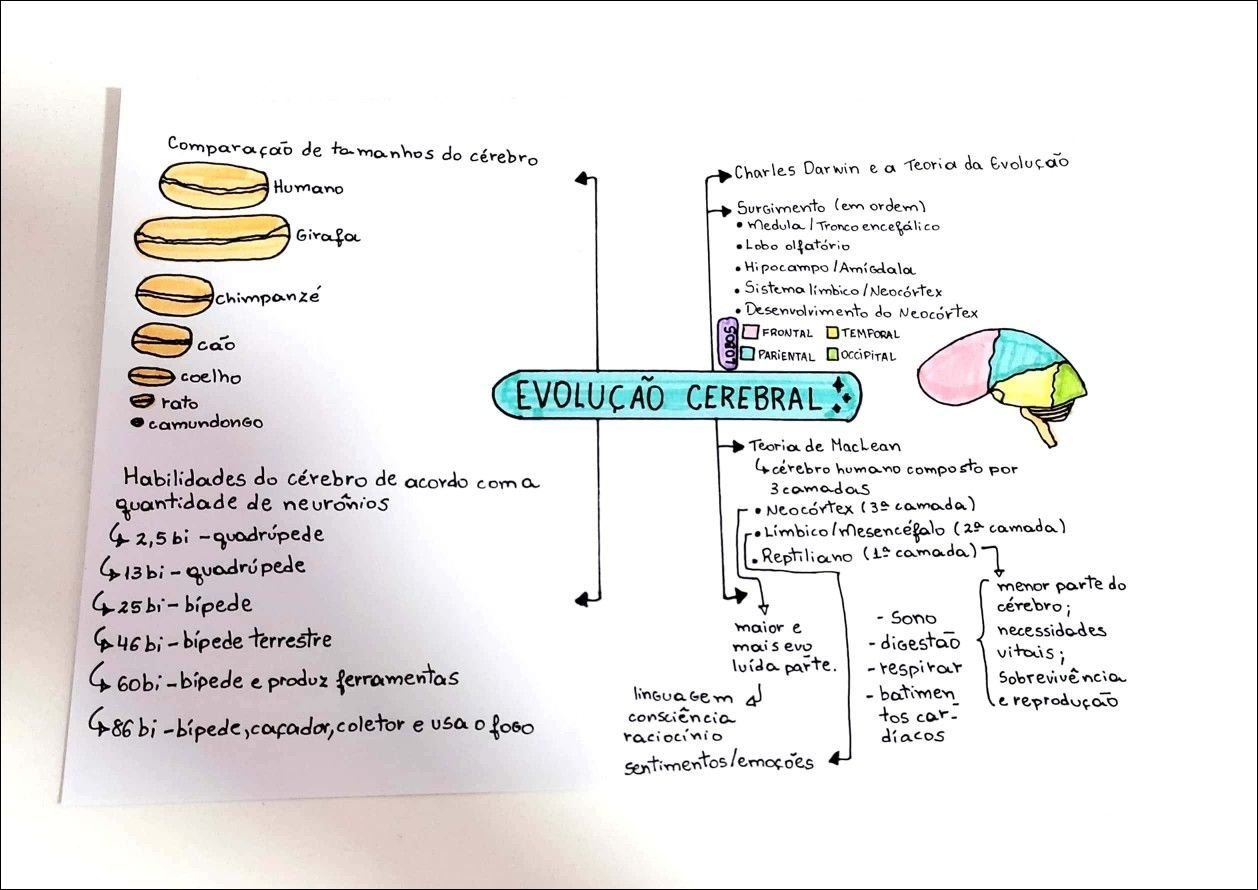 Comparação de tamanhos do cérebro
Humano
Girafa
chimpanzé
cão
coelho
rato
camundongo
Habilidades do cérebro de acordo com a
quantidade de neurônios
2,5 bi - quadrúpede
13 bi - quadrúpede
25 bi - bípede
46 bi - bípede terrestre
60 bi - bípede e produz ferramentas
86 bi - bípede, caçador, coletor e usa o fogo
EVOLUÇÃO CEREBRAL
Charles Darwin e a Teoria da Evolução
Surgimento (em ordem)
• Medula / Tronco encefálico
• Lobo olfatório
• Hipocampo / Amígdala
• Sistema límbico / Neocórtex
• Desenvolvimento do Neocórtex
LOBOS
FRONTAL TEMPORAL
PARIENTAL OCCIPITAL
Teoria de MacLean
cérebro humano composto por
3 camadas
• Neocórtex (3ª camada)
• Límbico/Mesencéfalo (2ª camada)
• Reptiliano (1ª camada)
maior e
mais evo
luída parte.
linguagem
consciência
raciocínio
sentimentos/emoções
menor parte do
cérebro;
necessidades
vitais;
sobrevivência
e reprodução
- Sono
- digestão
- respirar
- batimen
tos car-
díacos